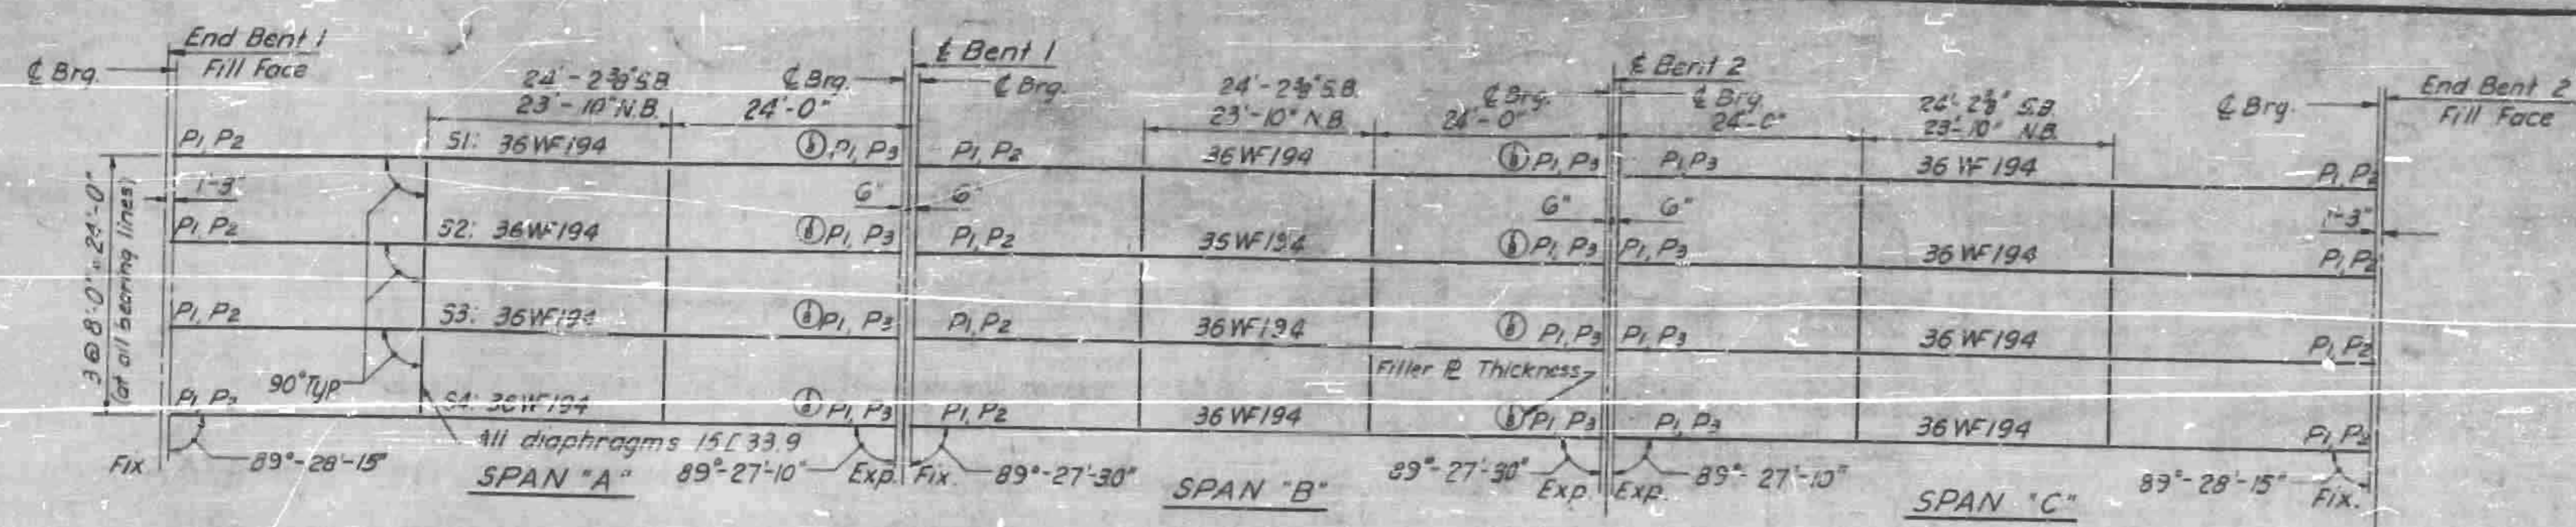 End Bent 1
Fill Face
℄ Brg.
24'-2⅜" S.B.
23'-10" N.B.
℄ Brg.
24'-0"
℄ Bent 1
℄ Brg.
24'-2⅜" S.B.
23'-10" N.B.
℄ Brg.
24'-0"
℄ Bent 2
℄ Brg.
24'-0"
24'-2⅜" S.B.
23'-10" N.B.
℄ Brg.
End Bent 2
Fill Face
P1, P2 S1: 36WF194 P1, P3 P1, P2 36WF194 P1, P3 P1, P3 36WF194 P1, P2
3 @ 8'-0" = 24'-0"
(at all bearing lines)
1'-3" 6" 6" 6" 6" 1'-3"
P1, P2 S2: 36WF194 P1, P3 P1, P2 36WF194 P1, P3 P1, P3 36WF194 P1, P2
P1, P2 S3: 36WF194 P1, P3 P1, P2 36WF194 P1, P3 P1, P3 36WF194 P1, P2
90° Typ.
Filler ℙ Thickness
P1, P2 S4: 36WF194 P1, P3 P1, P2 36WF194 P1, P3 P1, P3 36WF194 P1, P2
All diaphragms 15[33.9
Fix 89°-28'-15" SPAN "A" 89°-27'-10" Exp. Fix. 89°-27'-30" SPAN "B" 89°-27'-30" Exp. Exp. 89°-27'-10" SPAN "C" 89°-28'-15" Fix.